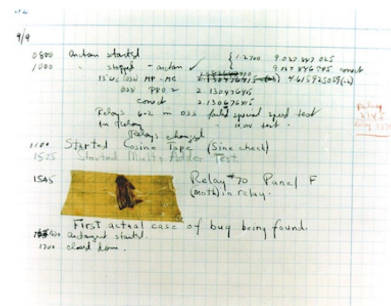 9/9
0800 Antan started
1000 " stopped - antan ✓ { 1.2700 9.037 847 025
9.037 846 995 correct
13'uc (032) MP - MC 4.615925059(-2)
(033) PRO 2 2.130476415
correct 2.130676415
Relays 6-2 in 033 failed special speed test
in relay 10.000 test.
Relays changed
1100 Started Cosine Tape (Sine check)
1525 Started Multi Adder Test.
1545 Relay #70 Panel F
(moth) in relay.
First actual case of bug being found.
antangent started.
1700 closed down.